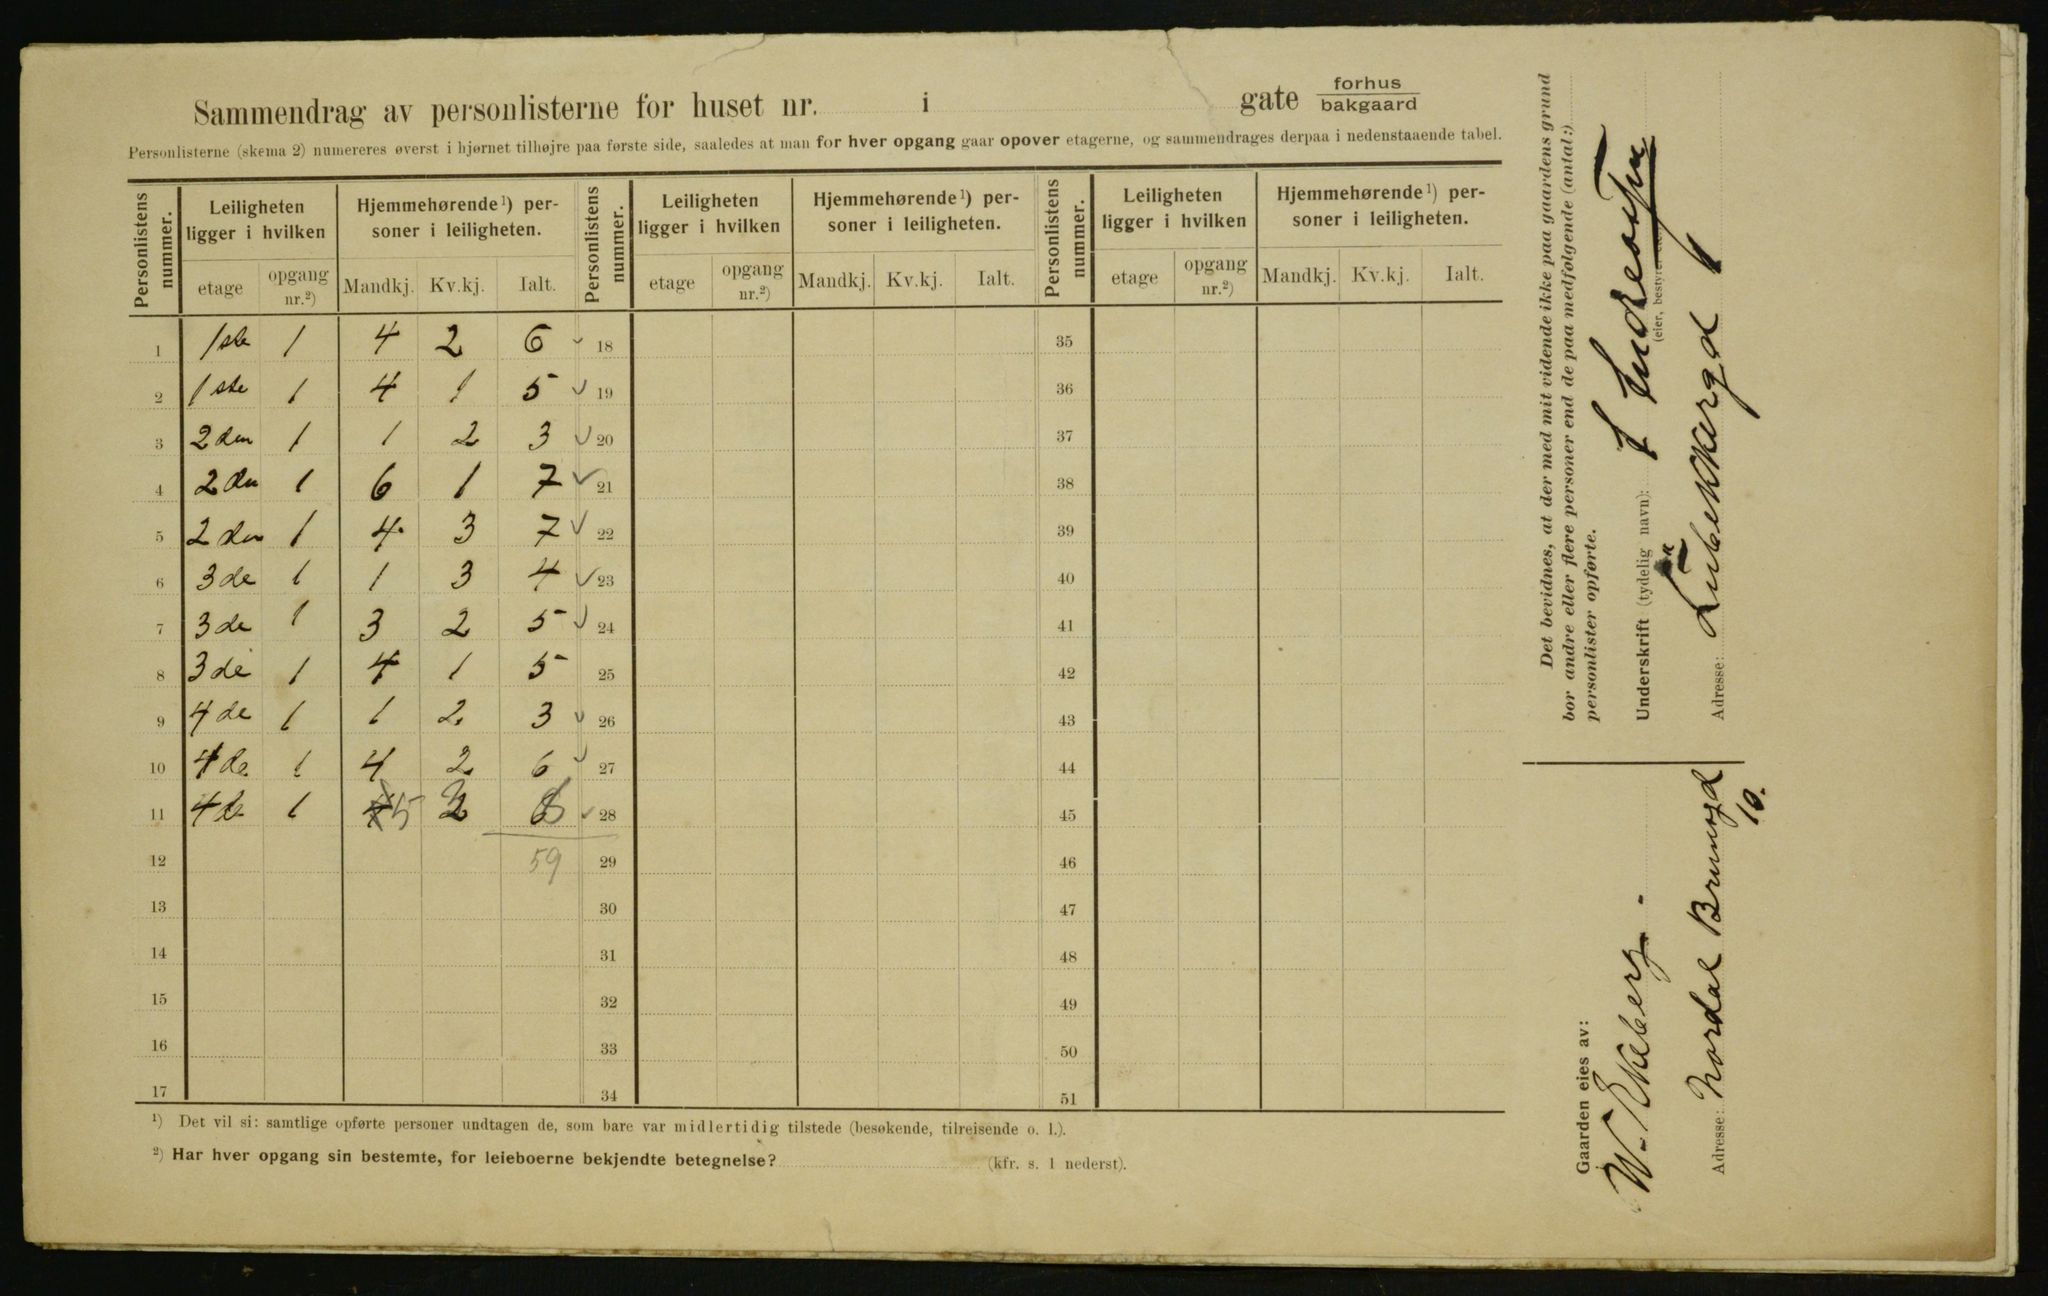 Sammendrag av personlisterne for huset nr. i gate forhus
bakgaard
Personlisterne (skema 2) numereres øverst i hjørnet tilhøjre paa første side, saaledes at man for hver opgang gaar opover etagerne, og sammendrages derpaa i nedenstaaende tabel.
Personlistens nummer. Leiligheten ligger i hvilken Hjemmehørende¹) personer i leiligheten. Personlistens nummer. Leiligheten ligger i hvilken Hjemmehørende¹) personer i leiligheten. Personlistens nummer. Leiligheten ligger i hvilken Hjemmehørende¹) personer i leiligheten.
etage opgang nr.²) Mandkj. Kv.kj. Ialt. etage opgang nr.²) Mandkj. Kv.kj. Ialt. etage opgang nr.²) Mandkj. Kv.kj. Ialt.
1 1ste 1 4 2 6 18 35
2 1ste 1 4 1 5 19 36
3 2den 1 1 2 3 20 37
4 2den 1 6 1 7 21 38
5 2den 1 4 3 7 22 39
6 3de 1 1 3 4 23 40
7 3de 1 3 2 5 24 41
8 3de 1 4 1 5 25 42
9 4de 1 1 2 3 26 43
10 4de 1 4 2 6 27 44
11 4de 1 5 28 45
12 59 29 46
13 30 47
14 31 48
15 32 49
16 33 50
17 34 51
¹) Det vil si: samtlige opførte personer undtagen de, som bare var midlertidig tilstede (besøkende, tilreisende o. l.).
²) Har hver opgang sin bestemte, for leieboerne bekjendte betegnelse? (kfr. s. 1 nederst).
Det bevidnes, at der med mit vidende ikke paa gaardens grund
bor andre eller flere personer end de paa medfølgende (antal:)
personlister opførte.
Underskrift (tydelig navn):
(eier, bestyrer
Adresse:
Gaarden eies av:
W. Ekeberg.
Adresse: Nordal Brunsgd
10.